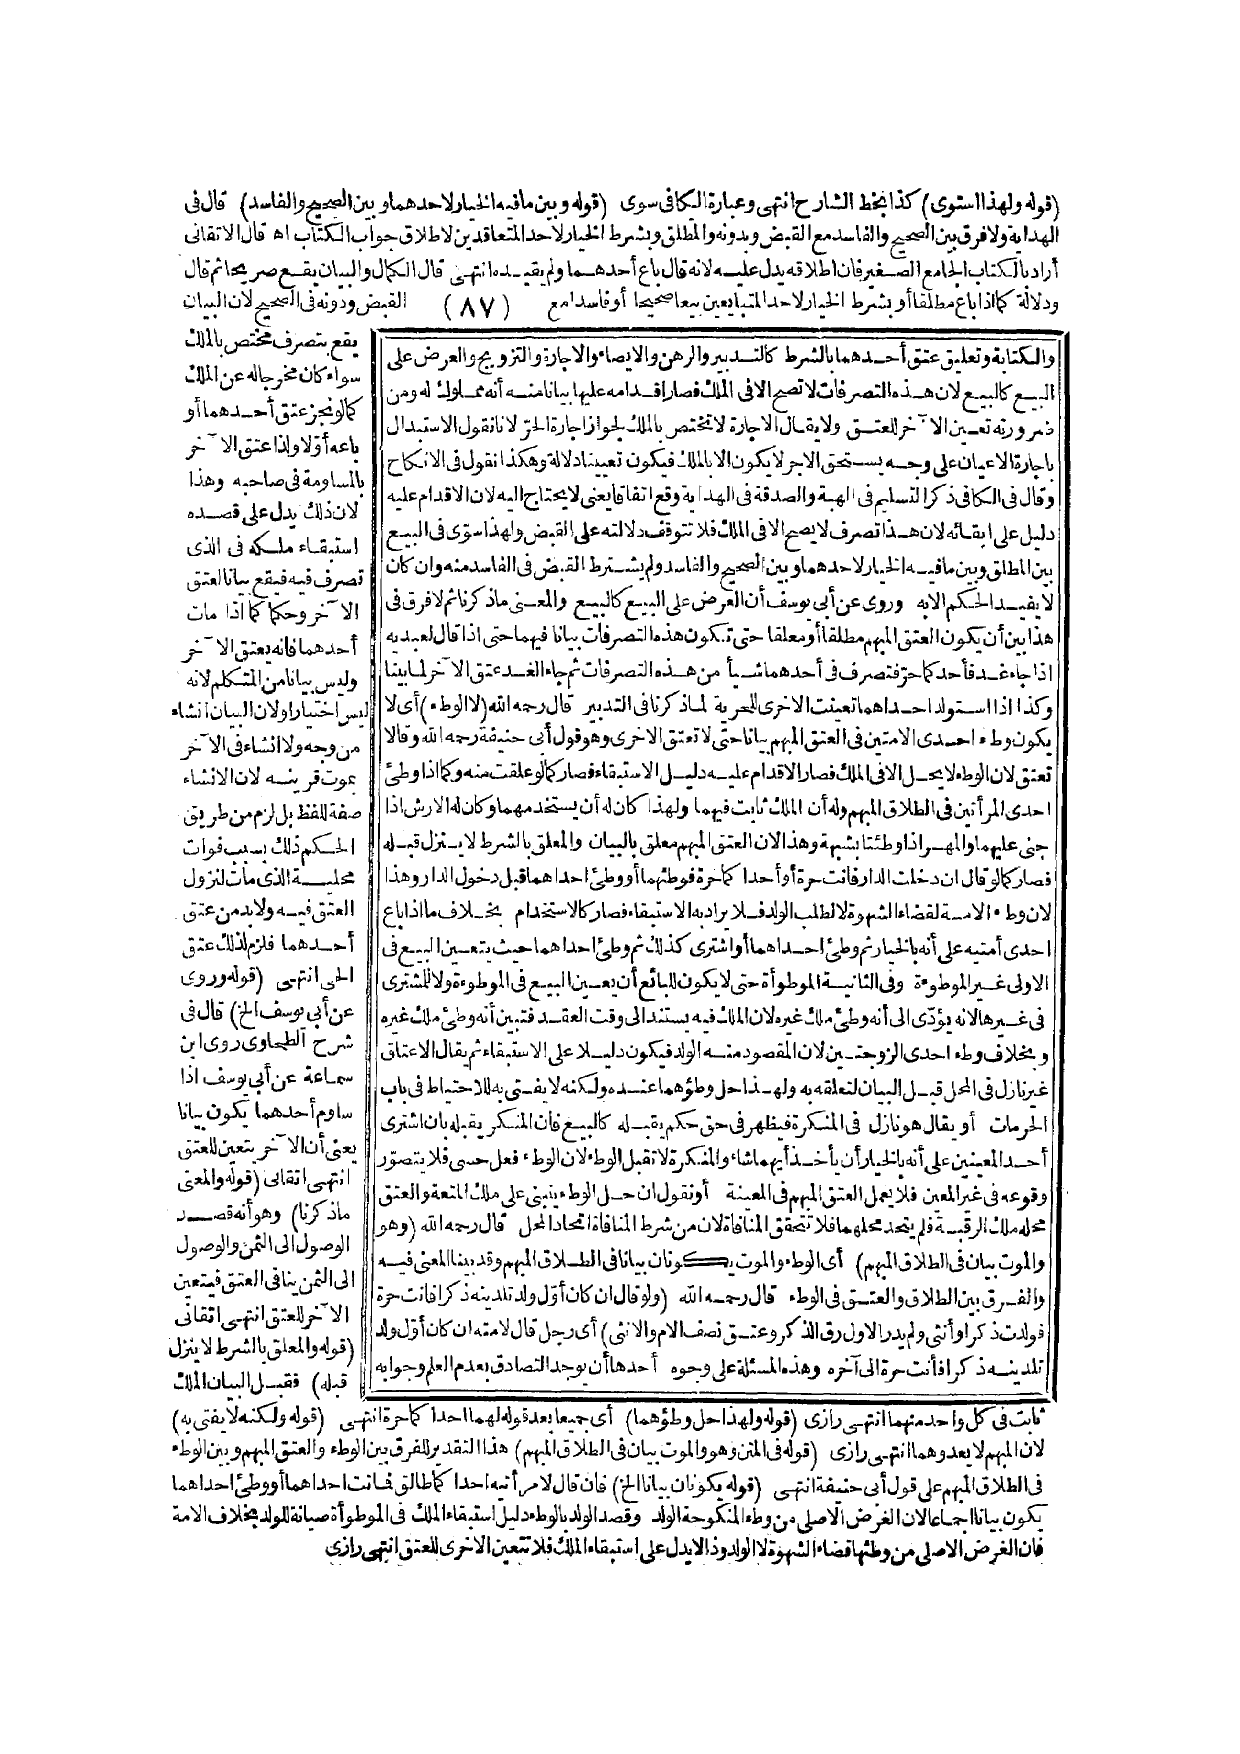 (قوله ولهذا استوى) كذا بخط الشارح انتهى وعبارة الكافى سوى (قوله وبين ما فيه الخيار لاحدهما وبين الصحيح والفاسد) قال فى
الهداية ولا فرق بين الصحيح والفاسد مع القبض وبدونه والمطلق وبشرط الخيار لاحد المتعاقدين لاطلاق جواب الكتاب اه قال الاتقانى
أراد بالكتاب الجامع الصغير فان اطلاقه يدل عليه لانه قال باع أحدهما ولم يقيده انتهى قال الكمال والبيان يقع صريحا ثم قال
ودلالة كما اذا باع مطلقا أو بشرط الخيار لاحد المتبايعين بيعا صحيحا أو فاسدا مع (٨٧) القبض ودونه فى الصحيح لان البيان
يقع بتصرف مختص بالملك
سواء كان مخرجا له عن الملك
كما لو نجز عتق أحدهما أو
باعه أولا واذا عتق الآخر
بالمساومة فى صاحبه وهذا
لان ذلك يدل على قصده
استبقاء ملكه فى الذى
تصرف فيه فيقع بيانا لعتق
الآخر وحكما كما اذا مات
أحدهما فانه يعتق الآخر
وليس بيانا من المتكلم لانه
ليس اختيارا ولان البيان انشاء
من وجه ولا انشاء فى الآخر
بموت قرينه لان الانشاء
صفة للفظ بل لزم من طريق
الحكم ذلك بسبب فوات
محلية الذى مات لنزول
العتق فيه ولا بد من عتق
أحدهما فلزم لذلك عتق
الحى انتهى (قوله وروى
عن أبى يوسف الخ) قال فى
شرح الطحاوى روى ابن
سماعة عن أبى يوسف اذا
ساوم أحدهما يكون بيانا
يعنى أن الآخر يتعين للعتق
انتهى اتقانى (قوله والمعنى
ما ذكرنا) وهو أنه قصد
الوصول الى الثمن والوصول
الى الثمن ينافى العتق فيتعين
الآخر للعتق انتهى اتقانى
(قوله والمعلق بالشرط لا ينزل
قبله) فقبل البيان الملك
والكتابة وتعليق عتق أحدهما بالشرط كالتدبير والرهن والايصاء والاجارة والتزويج والعرض على
البيع كالبيع لان هذه التصرفات لا تصح الا فى الملك فصار اقدامه عليها بيانا منه أنه مملوك له ومن
ضرورته تعين الآخر للعتق ولا يقال الاجارة لا تختص بالملك لجواز اجارة الحر لانا نقول الاستبدال
باجارة الاعيان على وجه يستحق الاجر لا يكون الا بالملك فيكون تعيينا دلالة وهكذا نقول فى الانكاح
وقال فى الكافى ذكر التسليم فى الهبة والصدقة فى الهداية وقع اتفاقا يعنى لا يحتاج اليه لان الاقدام عليه
دليل على ابقائه لان هذا تصرف لا يصح الا فى الملك فلا تتوقف دلالته على القبض ولهذا سوى فى البيع
بين المطلق وبين ما فيه الخيار لاحدهما وبين الصحيح والفاسد ولم يشترط القبض فى الفاسد منه وان كان
لا يفيد الحكم الا به وروى عن أبى يوسف أن العرض على البيع كالبيع والمعنى ما ذكرنا ثم لا فرق فى
هذا بين أن يكون العتق المبهم مطلقا أو معلقا حتى تكون هذه التصرفات بيانا فيهما حتى اذا قال لعبديه
اذا جاء غد فأحدكما حر فتصرف فى أحدهما شيأ من هذه التصرفات ثم جاء الغد عتق الآخر لما بينا
وكذا اذا استولد احداهما تعينت الاخرى للحرية لما ذكرنا فى التدبير قال رحمه الله (لا الوطء) أى لا
يكون وطء احدى الامتين فى العتق المبهم بيانا حتى لا تعتق الاخرى وهو قول أبى حنيفة رحمه الله وقالا
تعتق لان الوطء لا يحل الا فى الملك فصار الاقدام عليه دليل الاستبقاء فصار كما لو علقت منه وكما اذا وطئ
احدى المرأتين فى الطلاق المبهم وله أن الملك ثابت فيهما ولهذا كان له أن يستخدمهما وكان له الارش اذا
جنى عليهما والمهر اذا وطئتا بشبهة وهذا لان العتق المبهم معلق بالبيان والمعلق بالشرط لا ينزل قبله
فصار كما لو قال ان دخلت الدار فانت حرة أو احداكما حرة فوطئهما أو وطئ احداهما قبل دخول الدار وهذا
لان وطء الامة لقضاء الشهوة لا لطلب الولد فلا يراد به الاستبقاء فصار كالاستخدام بخلاف ما اذا باع
احدى أمتيه على أنه بالخيار ثم وطئ احداهما أو اشترى كذلك ثم وطئ احداهما حيث يتعين البيع فى
الاولى غير الموطوءة وفى الثانية الموطوأة حتى لا يكون للبائع أن يعين البيع فى الموطوءة ولا للمشترى
فى غيرها لانه يؤدى الى أنه وطئ ملك غيره لان الملك فيه يستند الى وقت العقد فتبين أنه وطئ ملك غيره
وبخلاف وطء احدى الزوجتين لان المقصود منه الولد فيكون دليلا على الاستبقاء ثم يقال الاعتاق
غير نازل فى المحل قبل البيان لتعلقه به ولهذا حل وطؤهما عنده ولكنه لا يفتى به للاحتياط فى باب
الحرمات أو يقال هو نازل فى المنكرة فيظهر فى حق حكم يقبله كالبيع فان المنكر يقبله بان اشترى
أحد المعينين على أنه بالخيار أن يأخذ أيهما شاء والمنكرة لا تقبل الوطء لان الوطء فعل حسى فلا يتصور
وقوعه فى غير المعين فلا يعمل العتق المبهم فى المعينة أو نقول ان حل الوطء يبتنى على ملك المتعة والعتق
محله ملك الرقبة فلم يتحد محلهما فلا تتحقق المنافاة لان من شرط المنافاة اتحاد المحل قال رحمه الله (وهو
والموت بيان فى الطلاق المبهم) أى الوطء والموت يكونان بيانا فى الطلاق المبهم وقد بينا المعنى فيه
والفرق بين الطلاق والعتق فى الوطء قال رحمه الله (ولو قال ان كان أول ولد تلدينه ذكرا فانت حرة
فولدت ذكرا وأنثى ولم يدر الاول رق الذكر وعتق نصف الام والانثى) أى رجل قال لامته ان كان أول ولد
تلدينه ذكرا فأنت حرة الى آخره وهذه المسئلة على وجوه أحدها أن يوجد التصادق بعدم العلم وجوابه
ثابت فى كل واحد منهما انتهى رازى (قوله ولهذا حل وطؤهما) أى جميعا بعد قوله لهما احداكما حرة انتهى (قوله ولكنه لا يفتى به)
لان المبهم لا يعدوهما انتهى رازى (قوله فى المتن وهو والموت بيان فى الطلاق المبهم) هذا التقدير للفرق بين الوطء والعتق المبهم وبين الوطء
فى الطلاق المبهم على قول أبى حنيفة انتهى (قوله يكونان بيانا الخ) فان قال لامرأتيه احداكما طالق فماتت احداهما أو وطئ احداهما
يكون بيانا اجماعا لان الغرض الاصلى من وطء المنكوحة الولد وقصد الولد بالوطء دليل استبقاء الملك فى الموطوأة صيانة للولد بخلاف الامة
فان الغرض الاصلى من وطئها قضاء الشهوة لا الولد وذا لا يدل على استبقاء الملك فلا تتعين الاخرى للعتق انتهى رازى